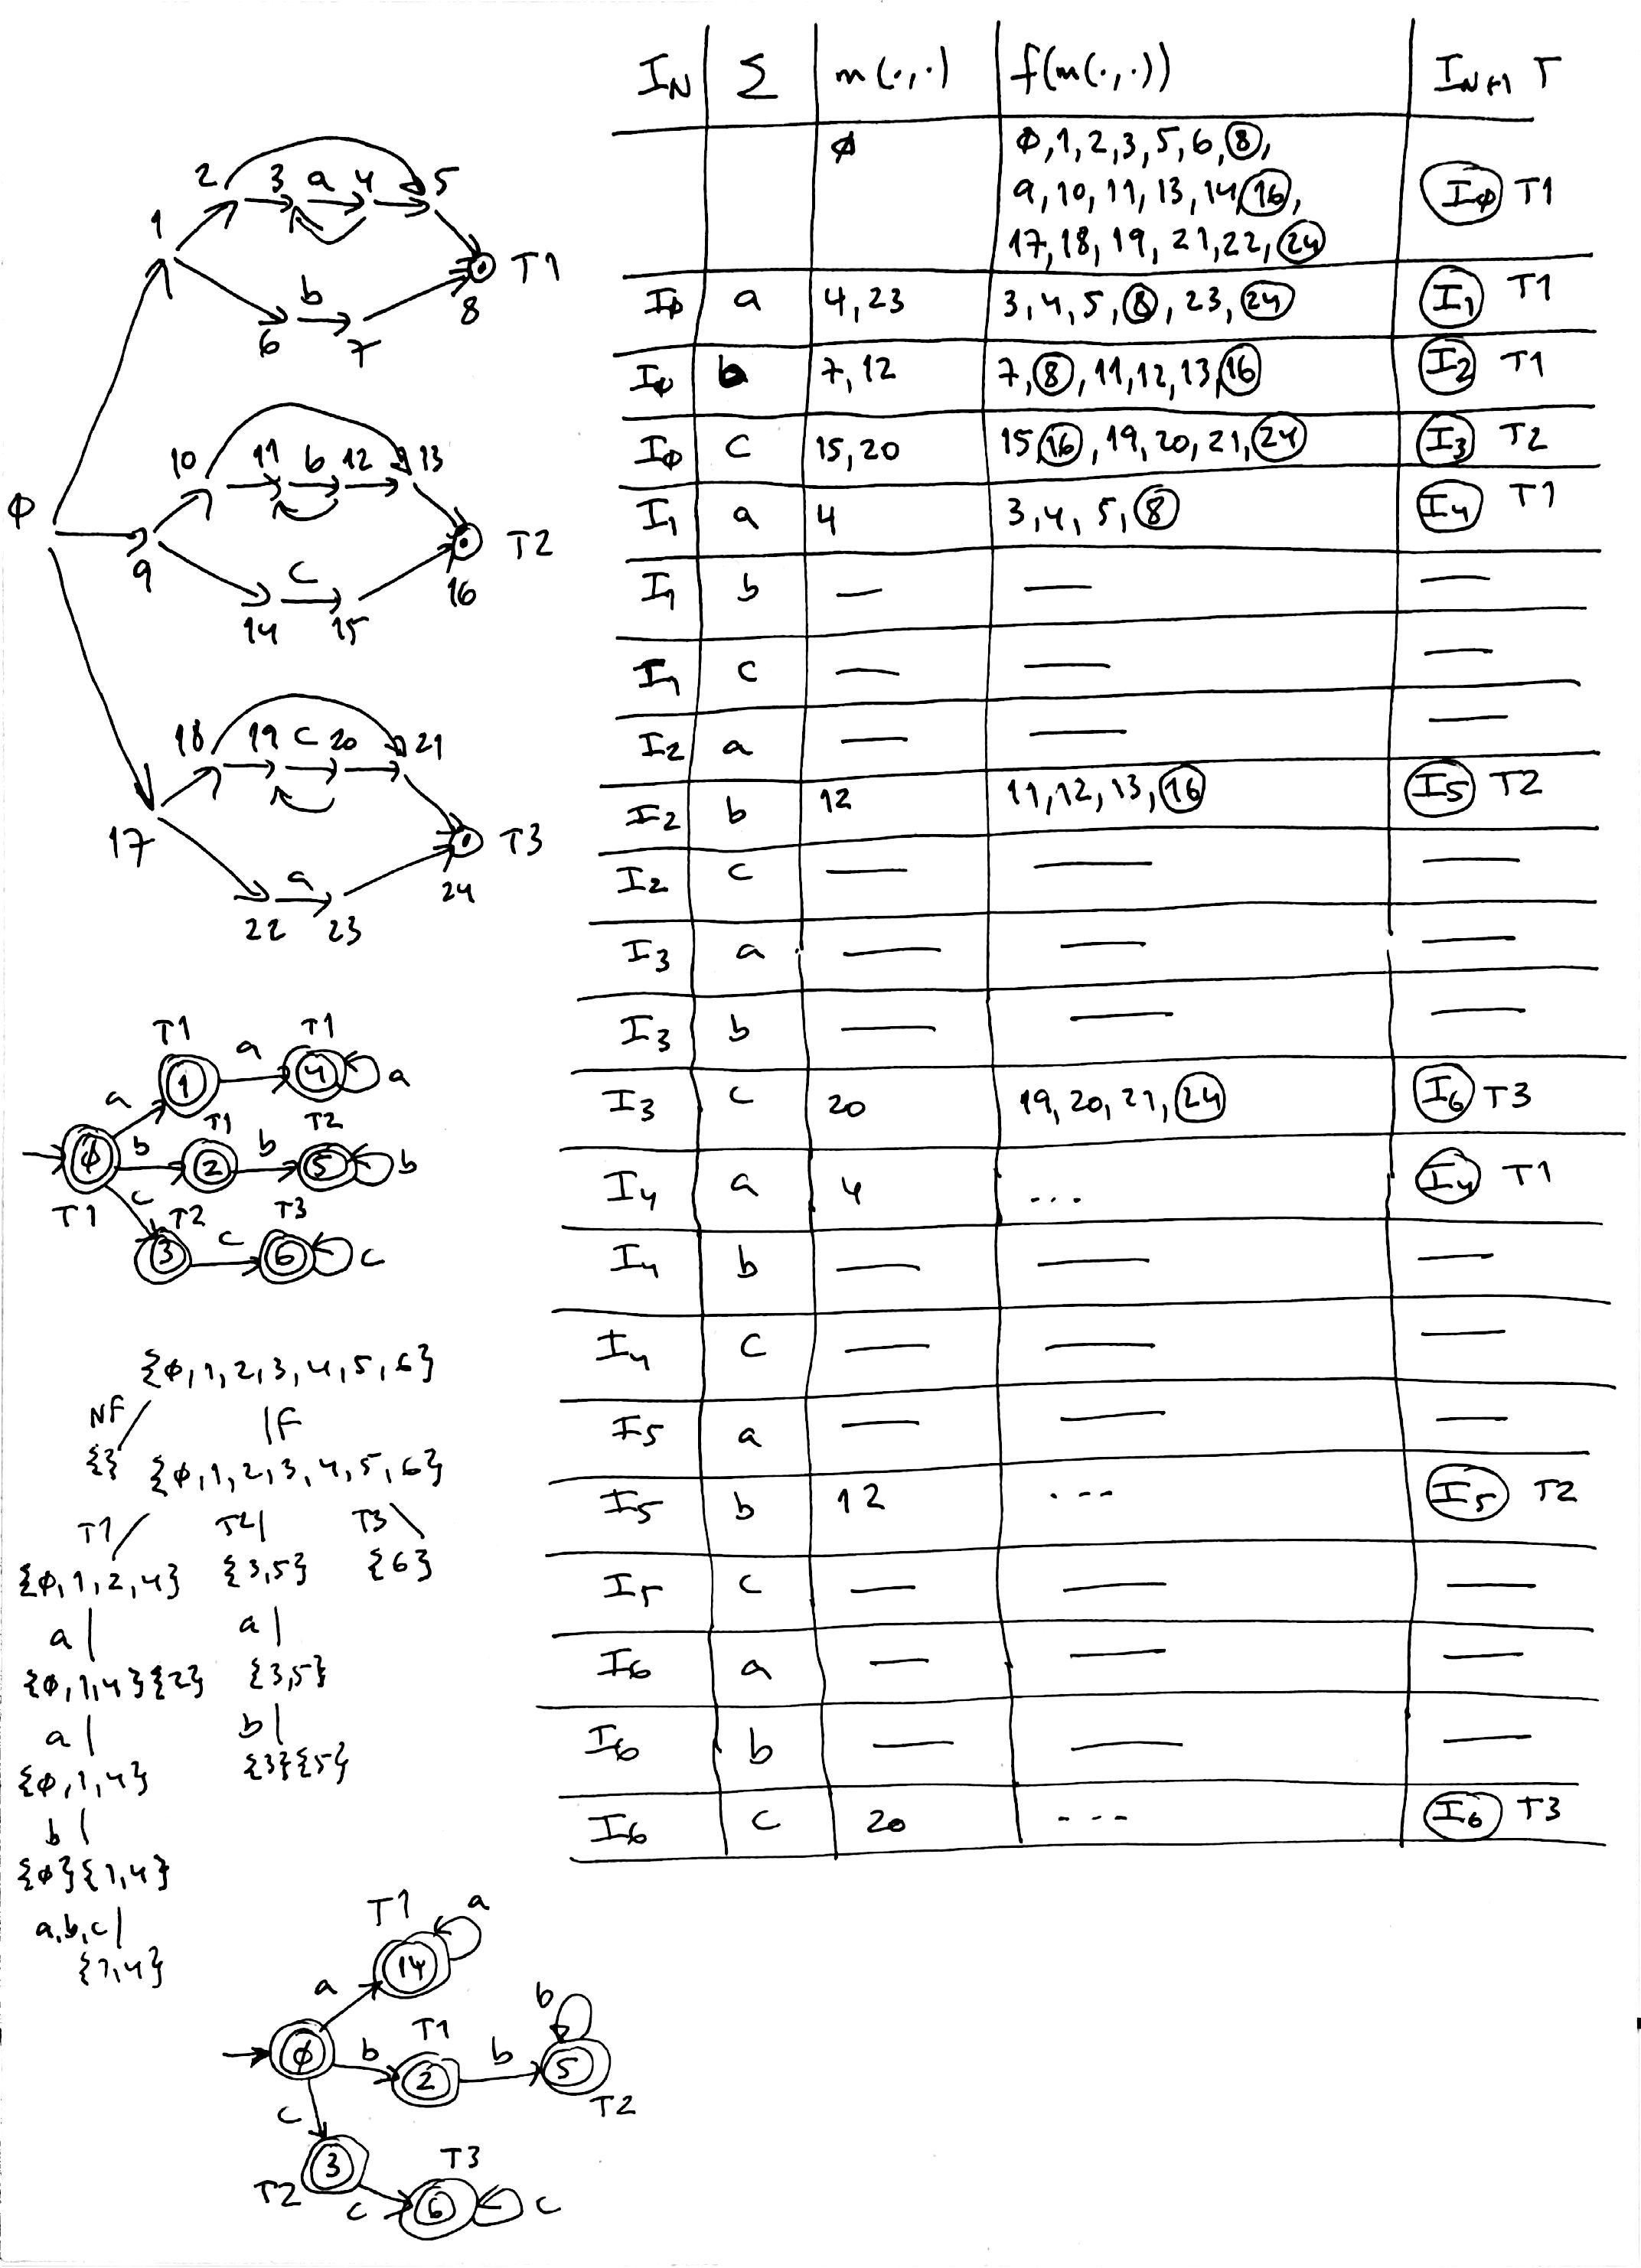 I_N Σ m(·,·) f(m(·,·)) I_N+1 T
∅ ∅,1,2,3,5,6,8,
9,10,11,13,14,16, I∅ T1
17,18,19,21,22,24
I∅ a 4,23 3,4,5,8,23,24 I1 T1
I∅ b 7,12 7,8,11,12,13,16 I2 T1
I∅ c 15,20 15,16,19,20,21,24 I3 T2
I1 a 4 3,4,5,8 I4 T1
I1 b — — —
I1 c — — —
I2 a — — —
I2 b 12 11,12,13,16 I5 T2
I2 c — — —
I3 a — — —
I3 b — — —
I3 c 20 19,20,21,24 I6 T3
I4 a 4 ... I4 T1
I4 b — — —
I4 c — — —
I5 a — — —
I5 b 12 --- I5 T2
I5 c — — —
I6 a — — —
I6 b — — —
I6 c 20 --- I6 T3
2 3 a 4 5
1
T1
b
6 7 8
10 11 b 12 13
∅
T2
9
c
14 15 16
18 19 c 20 21
17
T3
a
22 23 24
T1 T1
a 1 a 4 a
T1 T2
∅ b 2 b 5 b
T1 c T2 T3
3 c 6 c
{∅,1,2,3,4,5,6}
NF F
{} {∅,1,2,3,4,5,6}
T1 T2 T3
{∅,1,2,4} {3,5} {6}
a a
{∅,1,4}{2} {3,5}
a b
{∅,1,4} {3}{5}
b
{∅}{1,4}
a,b,c
{1,4}
T1 a
14
a
b
T1
∅ b 2 b 5
T2
c
3 T3
T2 c 6 c